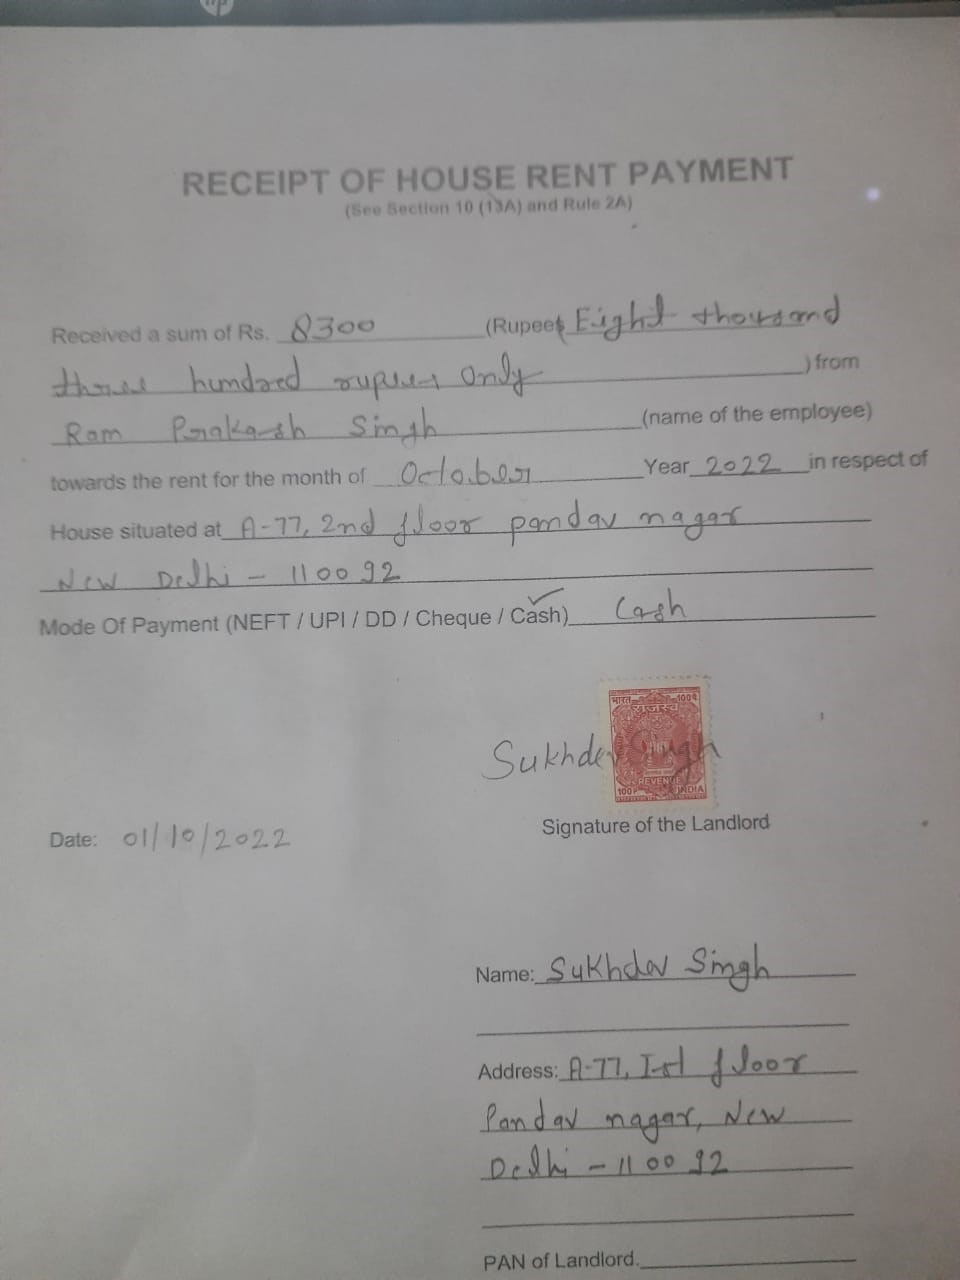 hp
RECEIPT OF HOUSE RENT PAYMENT
(See Section 10 (13A) and Rule 2A)
Received a sum of Rs. 8300 (Rupees Eight thousand
three hundred rupees only ) from
Ram Prakash Singh (name of the employee)
towards the rent for the month of October Year 2022 in respect of
House situated at A-77, 2nd floor pandav nagar
New Delhi - 110092
Mode Of Payment (NEFT / UPI / DD / Cheque / Cash) Cash
भारत 100पै
राजस्व
Sukhdev Singh
REVENUE
100P INDIA
Signature of the Landlord
Date: 01/10/2022
Name: Sukhdev Singh
Address: A-77, Ist floor
Pandav nagar, New
Delhi - 110092
PAN of Landlord.